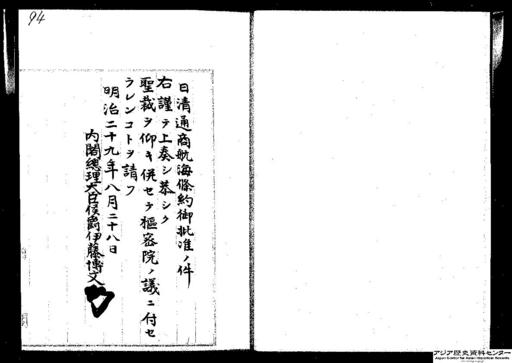 94
日清通商航海條約御批准ノ件
右謹テ上奏シ恭シク
聖裁ヲ仰キ併セテ樞密院ノ議ニ付セ
ラレンコトヲ請フ
明治二十九年八月二十八日
内閣總理大臣侯爵伊藤博文
アジア歴史資料センター
Japan Center for Asian Historical Records